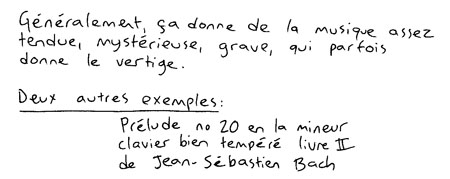 Généralement, ça donne de la musique assez
tendue, mystérieuse, grave, qui parfois
donne le vertige.
Deux autres exemples:
Prélude no 20 en la mineur
clavier bien tempéré livre II
de Jean-Sébastien Bach